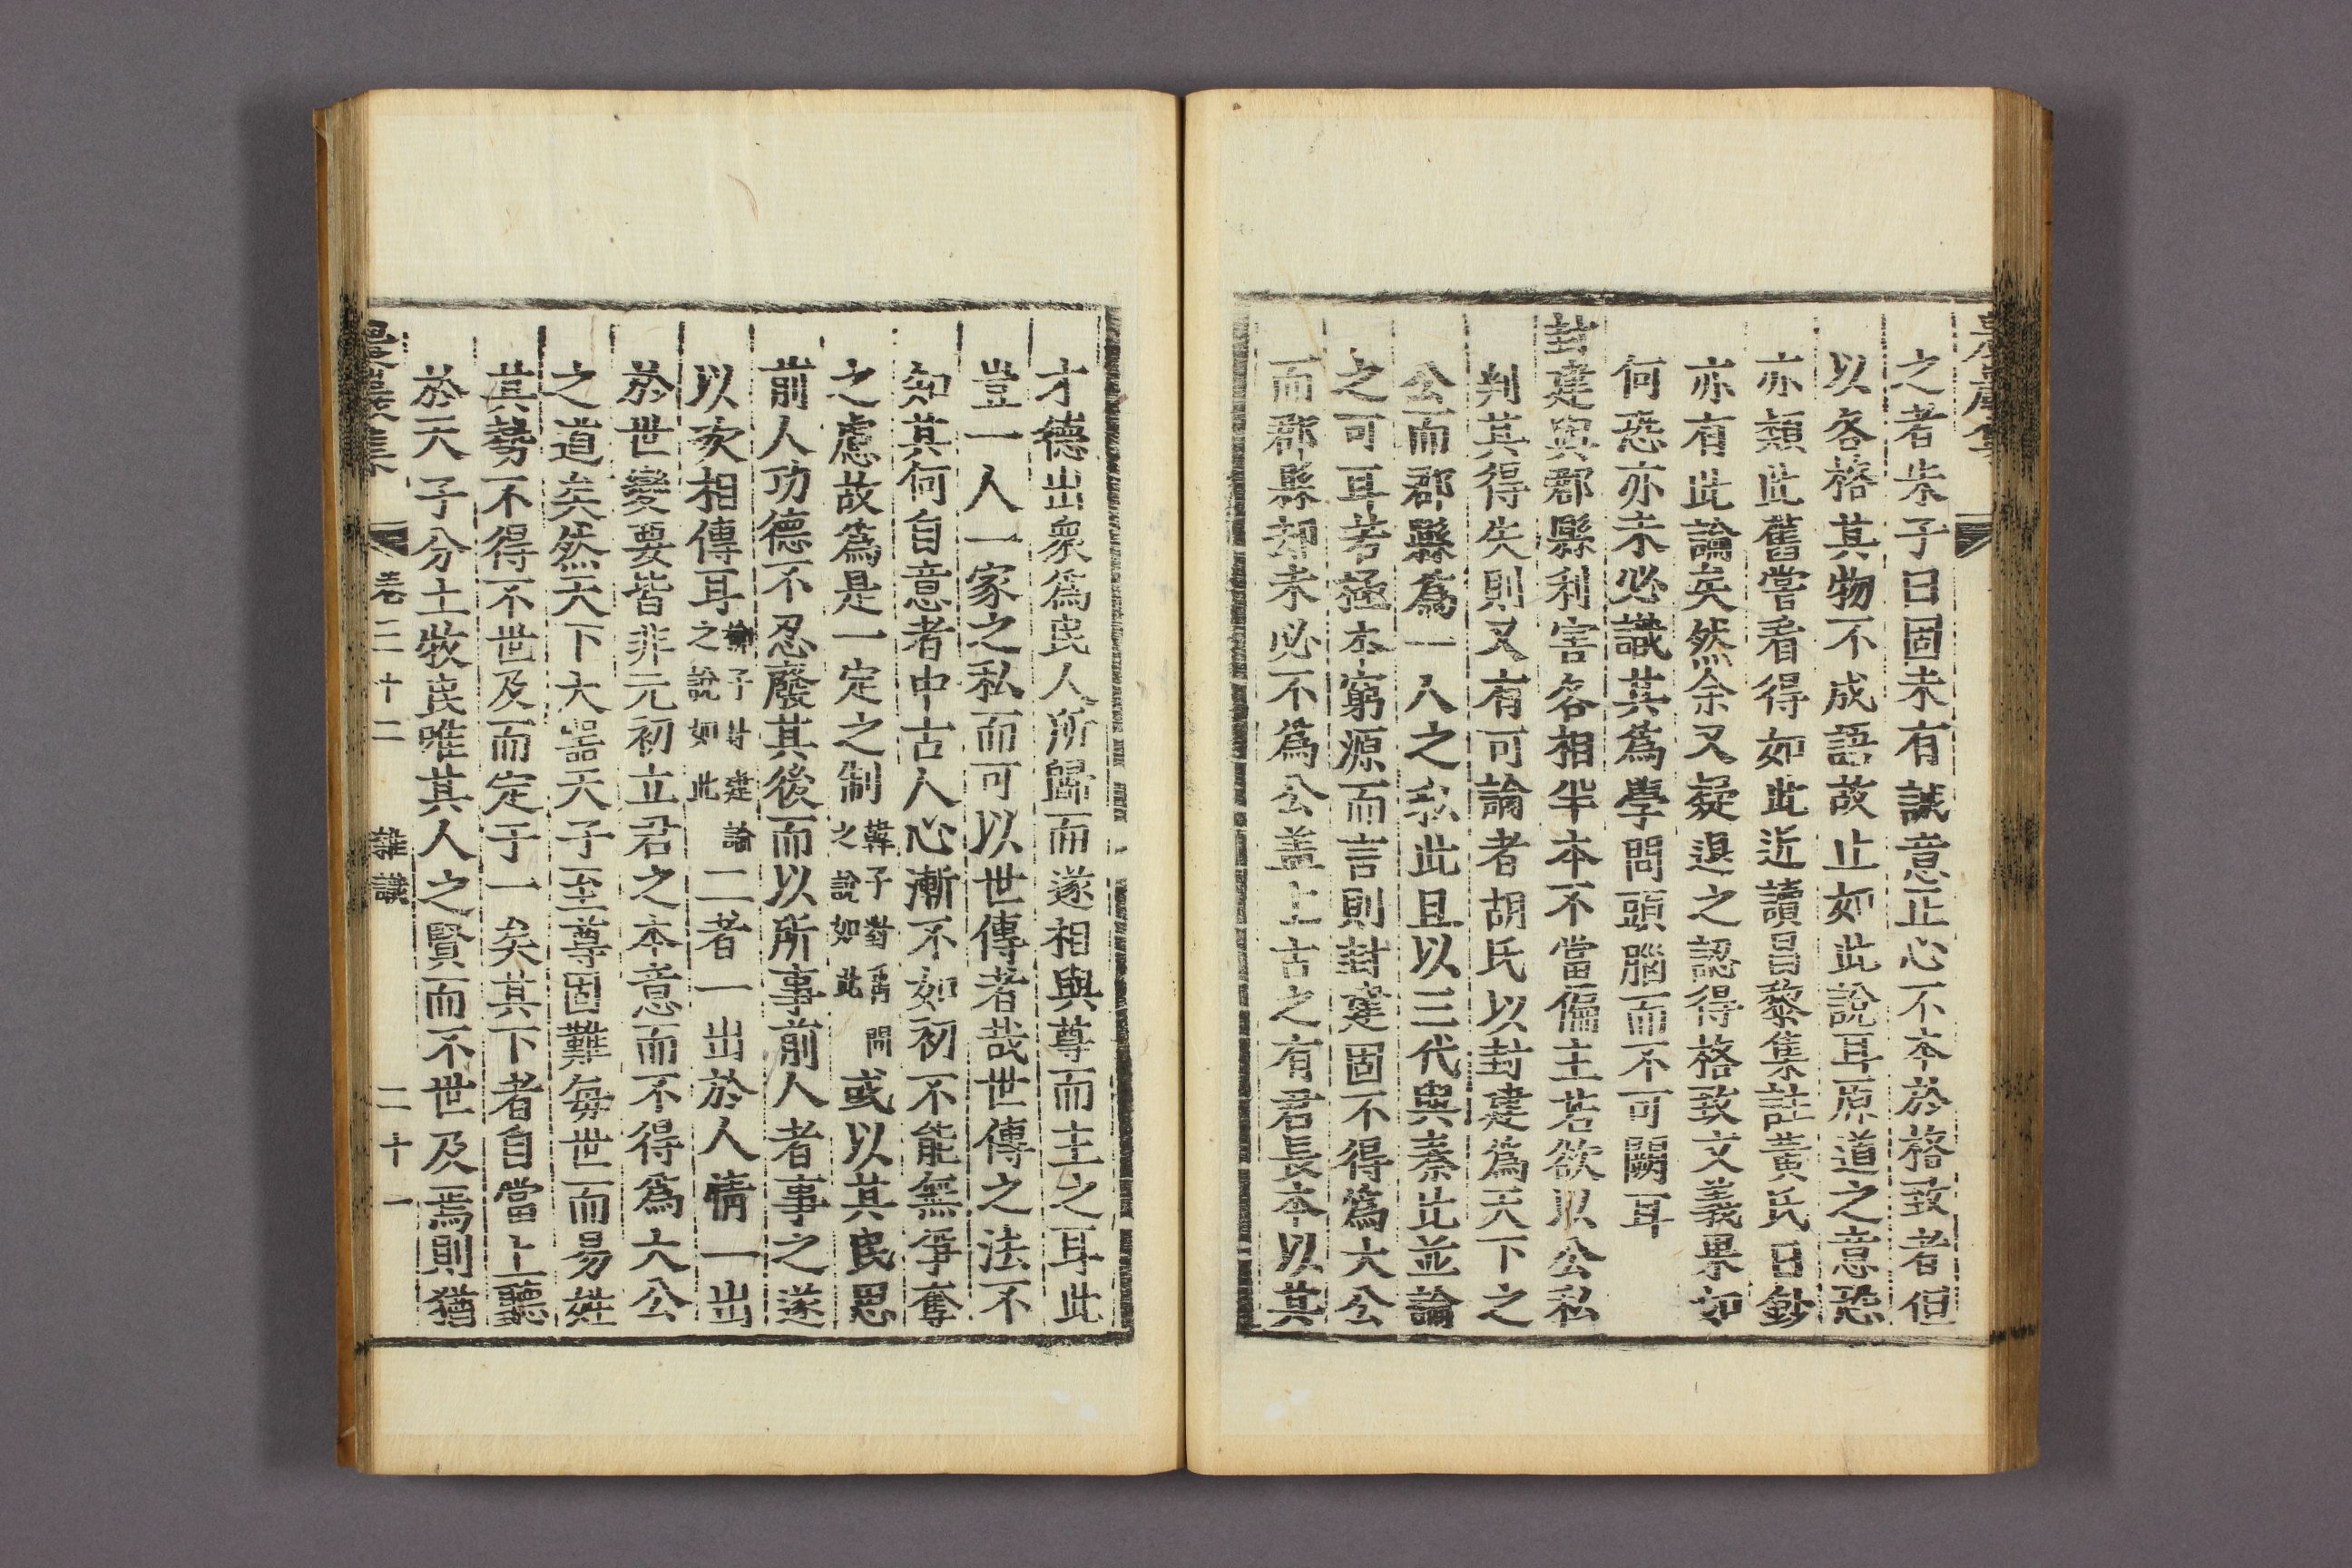 之者朱子曰固未有誠意正心不本於格致者但
以各格其物不成語故止如此說耳原道之意恐
亦類此舊嘗看得如此近讀昌黎集註黃氏日鈔
亦有此論矣然余又疑退之認得格致文義果如
何恐亦未必識其爲學問頭腦而不可闕耳
封建與郡縣利害各相半本不當偏主若欲以公私
判其得失則又有可論者胡氏以封建爲天下之
公而郡縣爲一人之私此且以三代與秦比並論
之可耳若極本窮源而言則封建固不得爲大公
而郡縣却未必不爲公盖上古之有君長本以其
才德出衆爲民人所歸而遂相與尊而主之耳此
豈一人一家之私而可以世傳者哉世傳之法不
知其何自意者中古人心漸不如初不能無爭奪
之慮故爲是一定之制韓子對禹問之說如此或以其民思
前人功德不忍廢其後而以所事前人者事之遂
以次相傳耳柳子封建論之說如此二者一出於人情一出
於世變要皆非元初立君之本意而不得爲大公
之道矣然天下大器天子至尊固難每世而易姓
其勢不得不世及而定于一矣其下者自當上聽
於天子分土牧民唯其人之賢而不世及焉則猶
農巖集 卷三十二 雜識 二十一